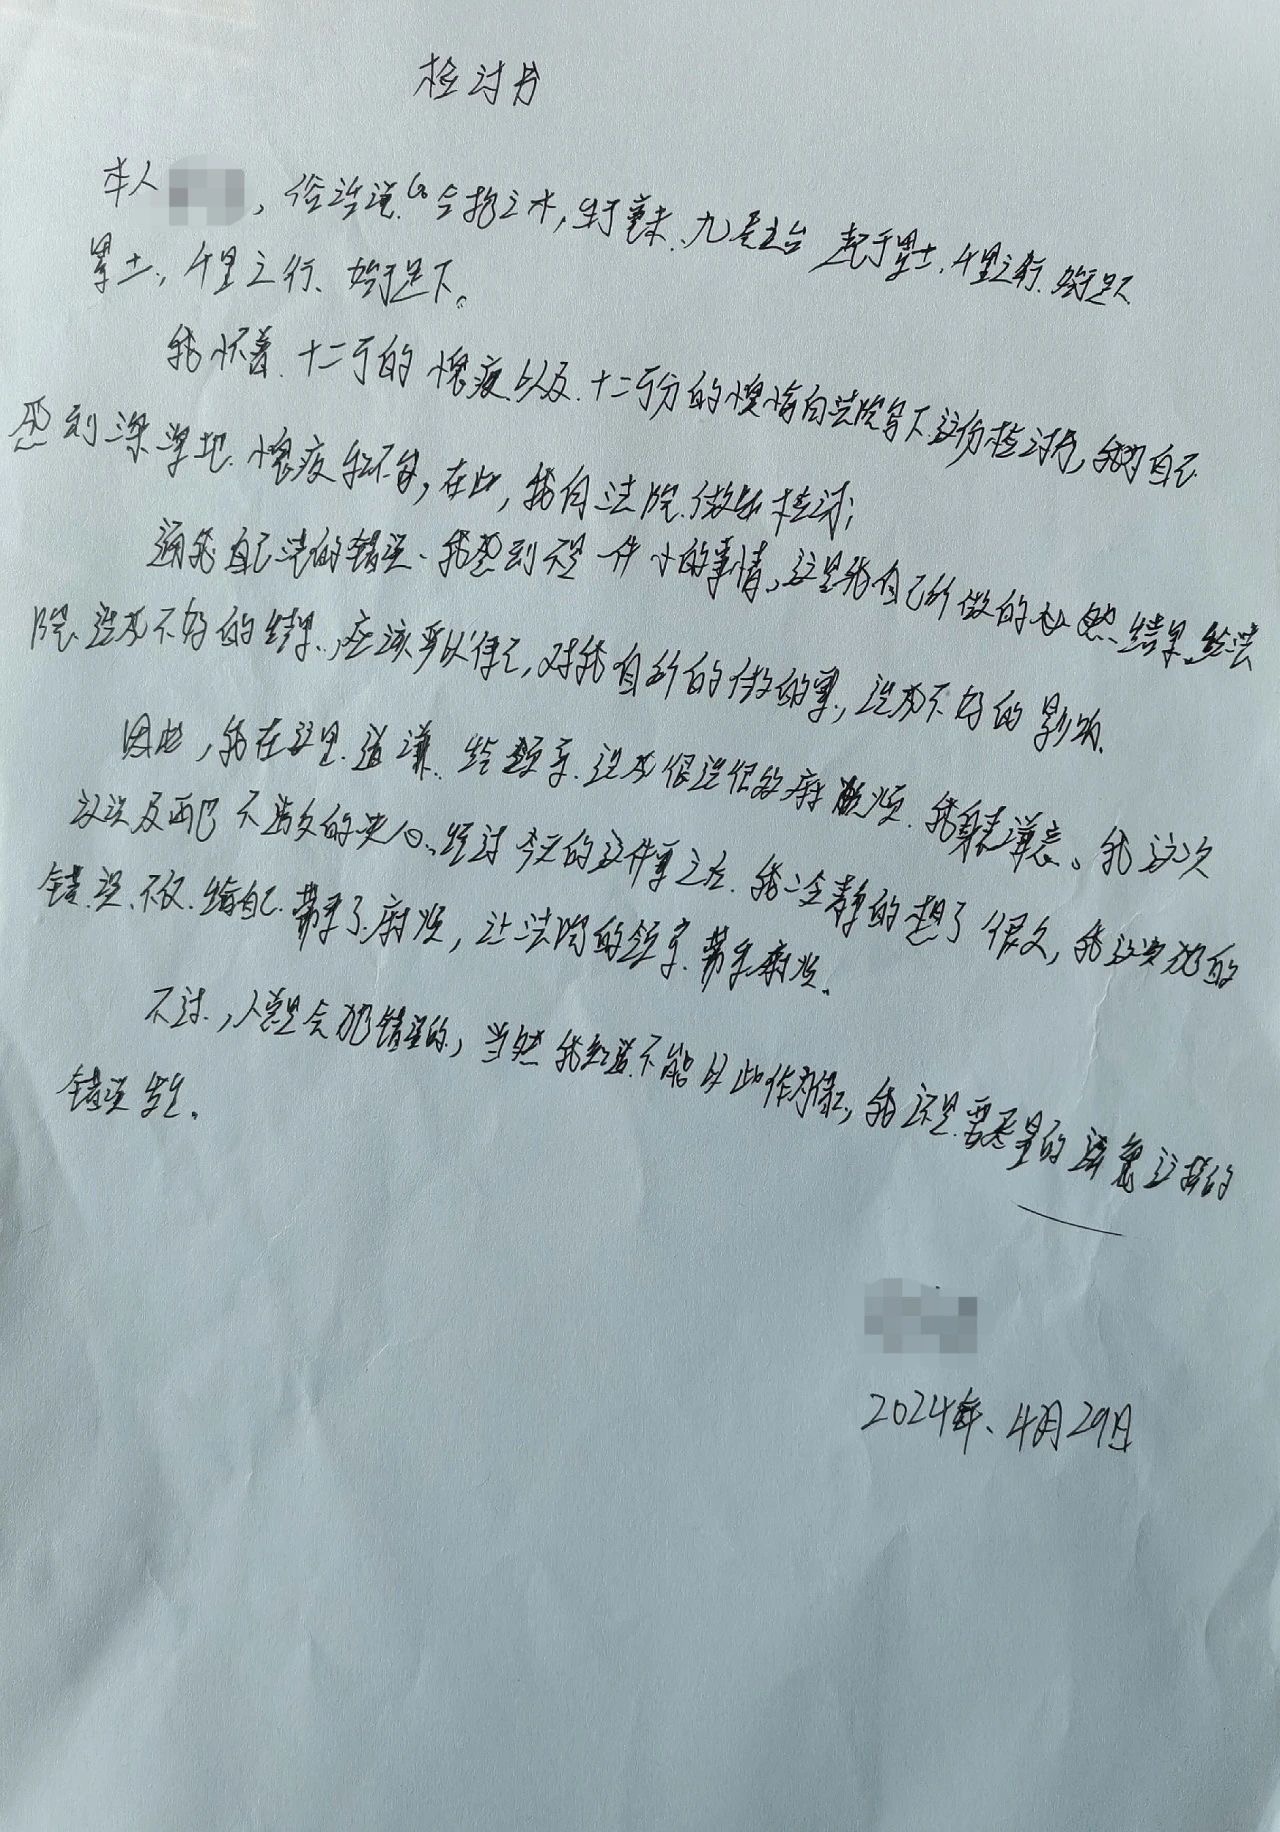 检讨书
本人，俗话说“合抱之木，生于毫末、九层之台 起于累土，千里之行、始于足下
累土，千里之行、始于足下。
我怀着、十二万的愧疚以及、十二万分的懊悔向法院写下这份检讨书，我为自己
感到深深地、愧疚和不安，在此，我向法院、做出检讨；
我自己的错误、我感到不是一件小的事情、这是我自己所做的必然结果、给法
院、造成不好的结果，应该严以律己，对我自所的做的事，造成不好的影响、
因此，我在这里、道谦、给领导、造成很很的麻烦、我深表谦意。我这次
的、经过今天的这件事之后、我冷静的想了很久，我这次犯的
错误、不仅、给自己、带来了麻烦，让法院的领导、带来麻烦、
不过，人总是会犯错误的，当然我知道不能以此作为借口，我还是要尽量的避免这样的
错误发生。
2024年、4月29日